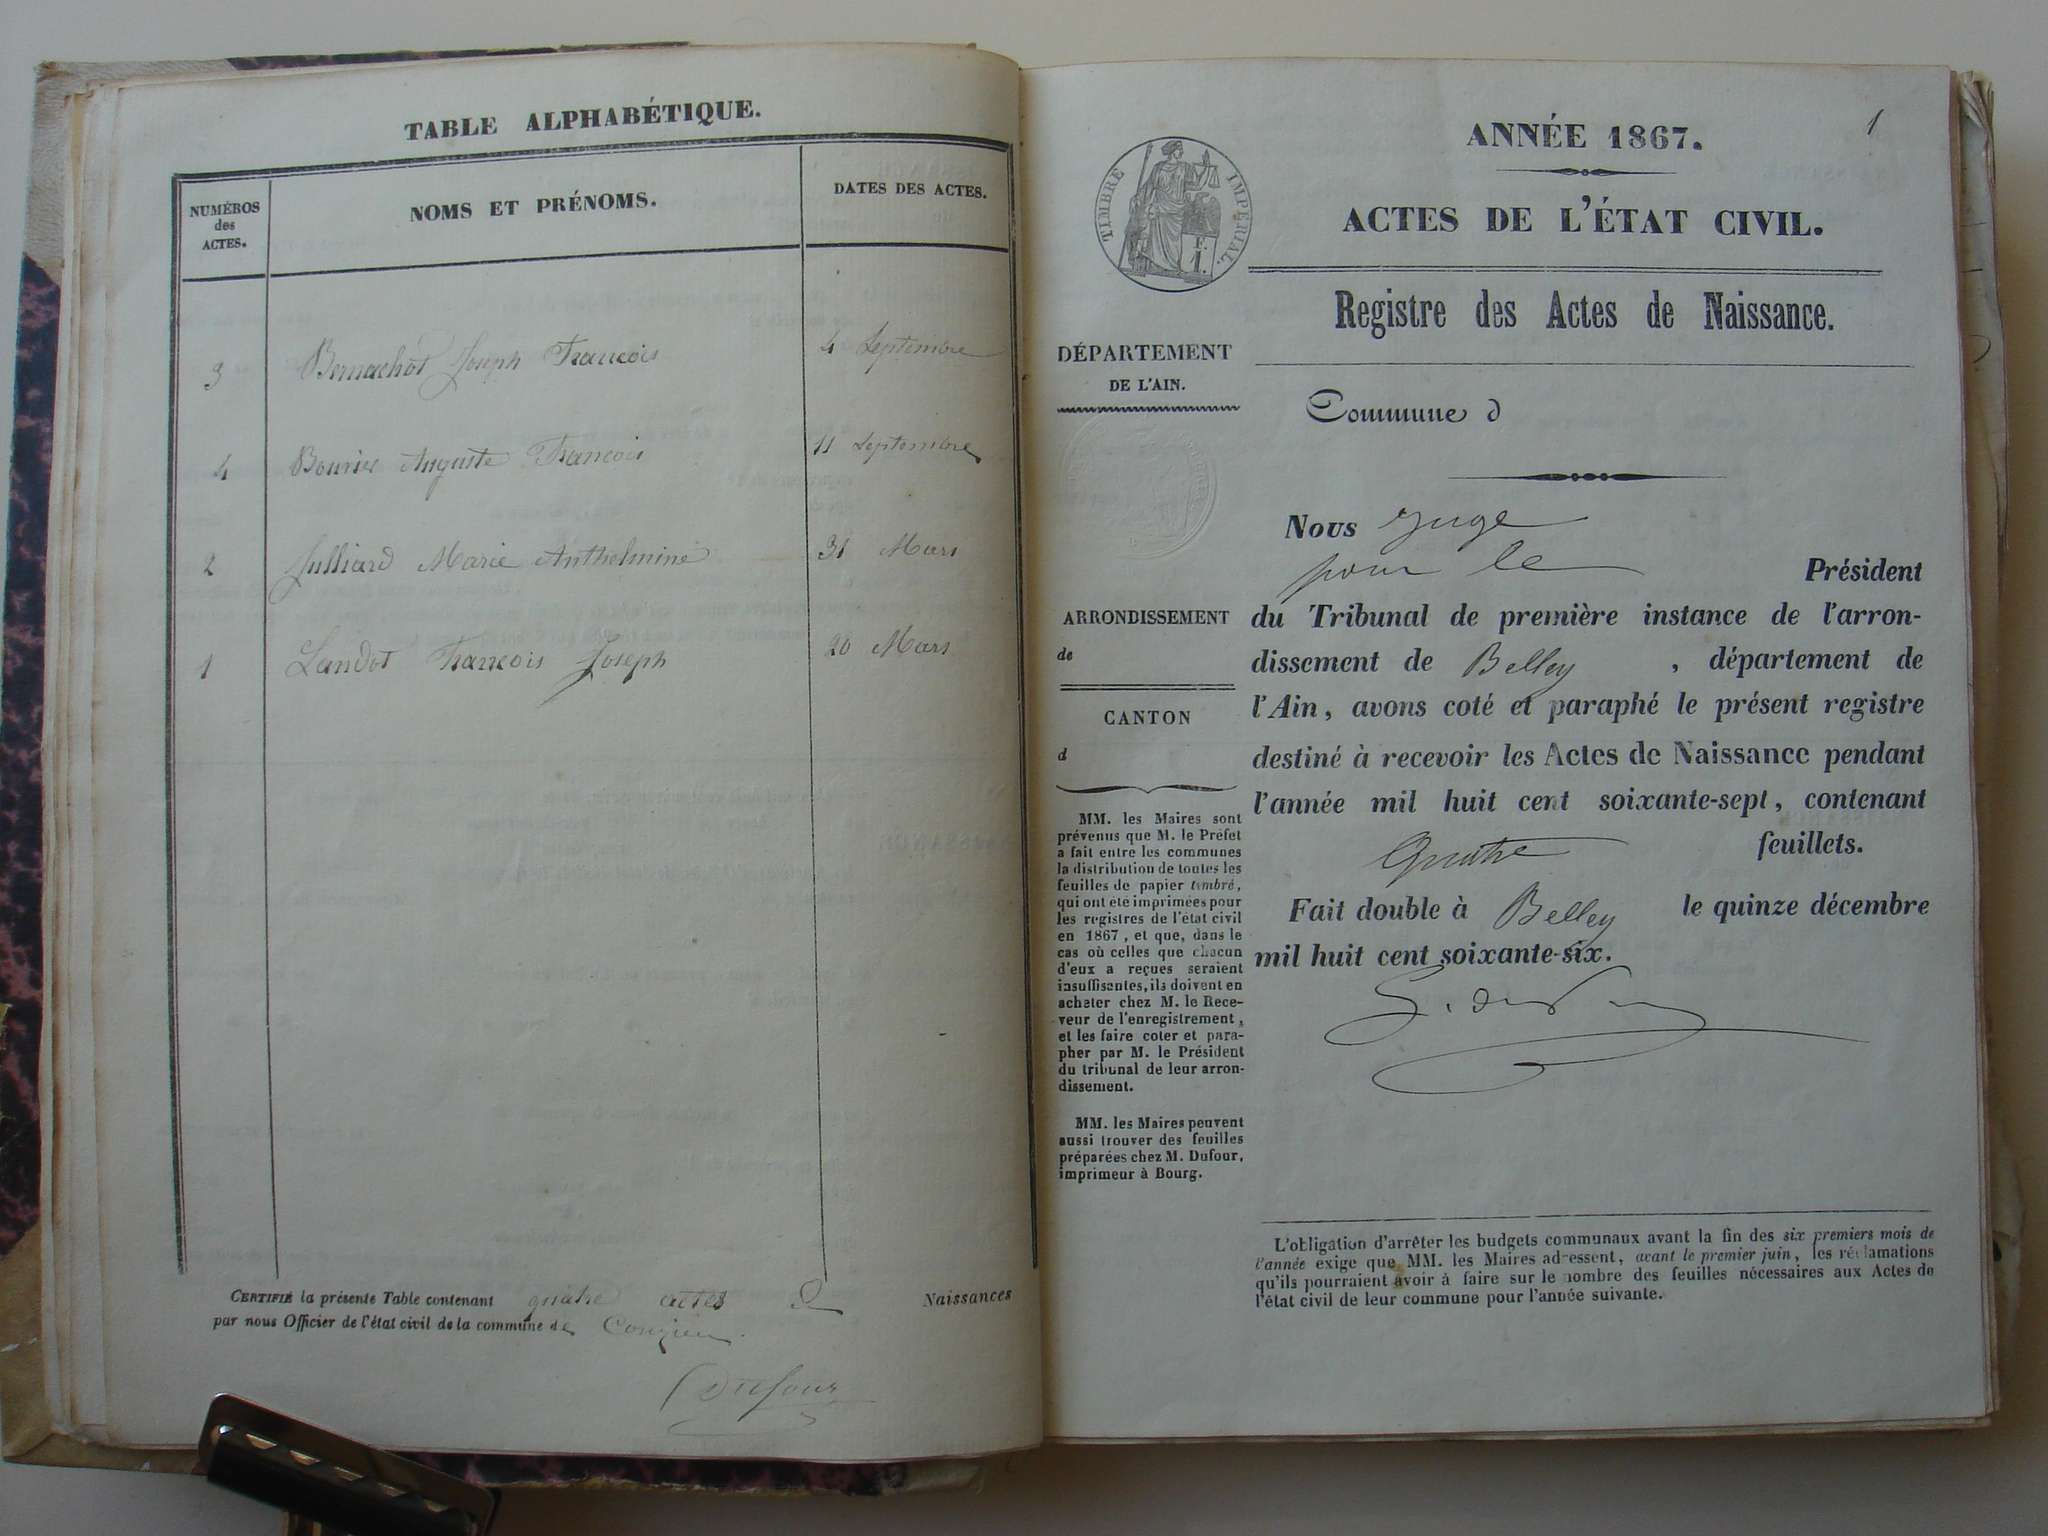 TABLE ALPHABÉTIQUE.
NUMÉROS des ACTES. NOMS ET PRÉNOMS. DATES DES ACTES.
3 Bernachot Joseph François 4 Septembre
4 Bourier Auguste François 11 Septembre
2 Julliard Marie Anthelmine 31 Mars
1 Landot François Joseph 20 Mars
CERTIFIÉ la présente Table contenant quatre actes de Naissances
par nous Officier de l'état civil de la commune de Conzieu.
Dufour
1
ANNÉE 1867.
ACTES DE L'ÉTAT CIVIL.
TIMBRE IMPÉRIAL.
Registre des Actes de Naissance.
DÉPARTEMENT
DE L'AIN.
Commune d
Nous Juge
pour le Président
du Tribunal de première instance de l'arron-
dissement de Belley, département de
l'Ain, avons coté et paraphé le présent registre
destiné à recevoir les Actes de Naissance pendant
l'année mil huit cent soixante-sept, contenant
Quatre feuillets.
Fait double à Belley le quinze décembre
mil huit cent soixante-six.
ARRONDISSEMENT
de
CANTON
d
MM. les Maires sont
prévenus que M. le Préfet
a fait entre les communes
la distribution de toutes les
feuilles de papier timbré,
qui ont été imprimées pour
les registres de l'état civil
en 1867, et que, dans le
cas où celles que chacun
d'eux a reçues seraient
insuffisantes, ils doivent en
acheter chez M. le Rece-
veur de l'enregistrement,
et les faire coter et para-
pher par M. le Président
du tribunal de leur arron-
dissement.
MM. les Maires peuvent
aussi trouver des feuilles
préparées chez M. Dufour,
imprimeur à Bourg.
L'obligation d'arrêter les budgets communaux avant la fin des six premiers mois de
l'année exige que MM. les Maires adressent, avant le premier juin, les réclamations
qu'ils pourraient avoir à faire sur le nombre des feuilles nécessaires aux Actes de
l'état civil de leur commune pour l'année suivante.